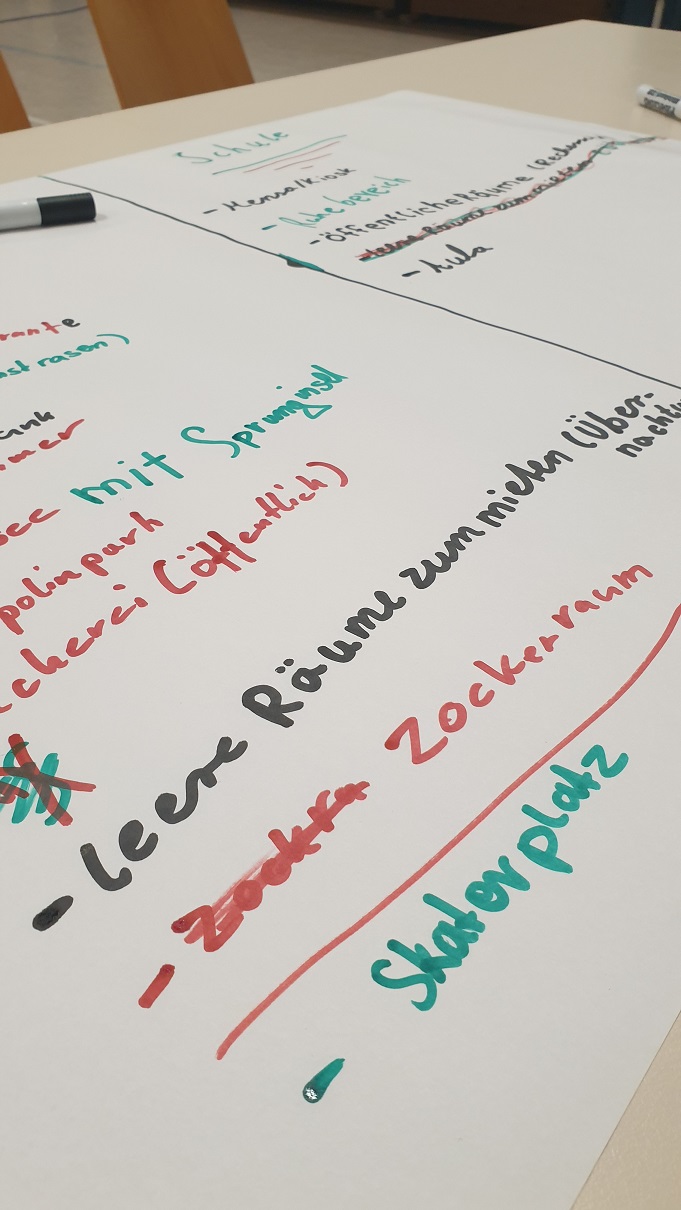 Schule
- Mensa/Kiosk
- Ruhebereich
- Öffentliche Räume
- leere Räume zum mieten
- Aula
rante
rasen)
mit Sprunginsel
polinpark
cherei (öffentlich)
- leere Räume zum mieten (Über-
nachtu
- Zockra Zockerraum
- Skaterplatz